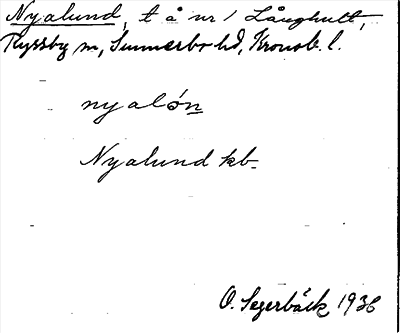 Nyalund, t å nr 1 Långhult,
Ryssby sn, Sunnerbo hd, Kronob. l.
nyalón
Nyalund kb.
O. Segerbäck 1936